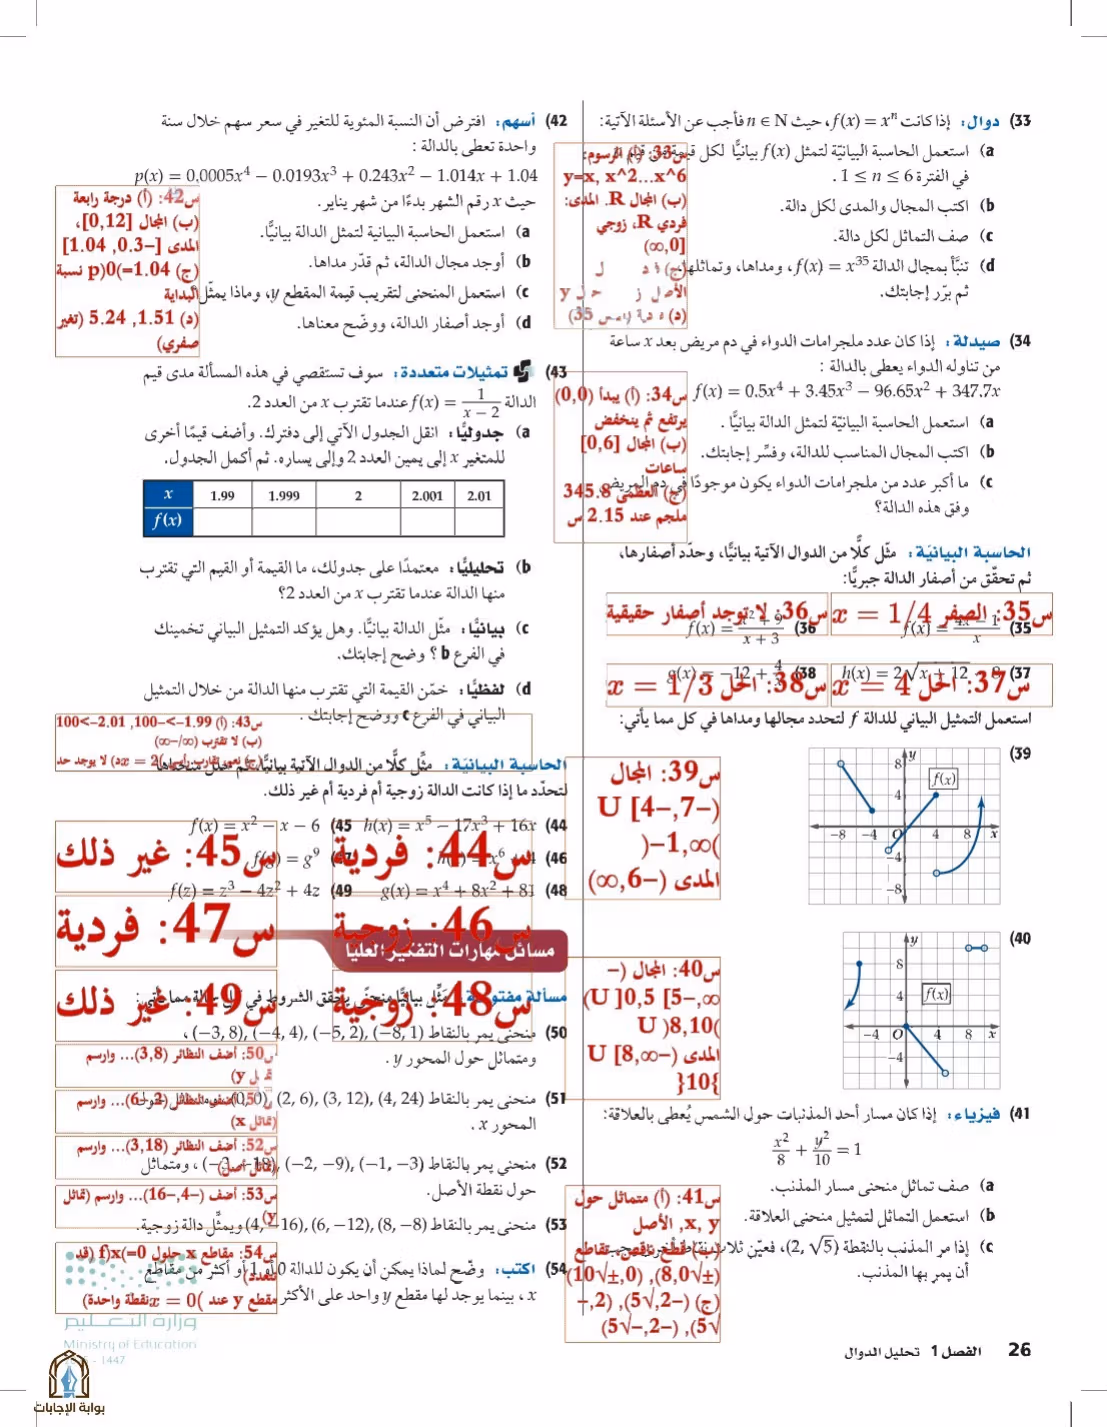 33) دوال: إذا كانت f(x) = xⁿ، حيث n ∈ N فأجب عن الأسئلة الآتية:
a) استعمل الحاسبة البيانيّة لتمثل f(x) بيانيًّا لكل قيمة من قيم n
في الفترة 1 ≤ n ≤ 6 .
b) اكتب المجال والمدى لكل دالة.
c) صف التماثل لكل دالة.
d) تنبَّأ بمجال الدالة f(x) = x³⁵، ومداها، وتماثلها،
ثم برّر إجابتك.
س33: (أ) الرسوم:
y=x, x^2...x^6
(ب) المجال R. المدى:
فردي R، زوجي
[0,∞)
34) صيدلة: إذا كان عدد ملجرامات الدواء في دم مريض بعد x ساعة
من تناوله الدواء يعطى بالدالة :
f(x) = 0.5x⁴ + 3.45x³ − 96.65x² + 347.7x
a) استعمل الحاسبة البيانيّة لتمثل الدالة بيانيًّا .
b) اكتب المجال المناسب للدالة، وفسِّر إجابتك.
c) ما أكبر عدد من ملجرامات الدواء يكون موجودًا في دم المريض
وفق هذه الدالة؟
س34: (أ) يبدأ (0,0)
يرتفع ثم ينخفض
(ب) المجال [0,6]
ساعات
(ج) العظمى 345.8
ملجم عند 2.15 س
الحاسبة البيانيّة: مثّل كلًّا من الدوال الآتية بيانيًّا، وحدّد أصفارها،
ثم تحقّق من أصفار الدالة جبريًّا:
س35: الصفر x = 1/4
س36: لا توجد أصفار حقيقية
35) f(x) = 4x − 1 / x
36) f(x) = x² + 9 / x + 3
37) h(x) = 2√x + 12 − 8
38) g(x) = −12 + 4/x
س37: الحل x = 4
س38: الحل x = 1/3
استعمل التمثيل البياني للدالة f لتحدد مجالها ومداها في كل مما يأتي:
39)
y 8 4 −4 −8 −8 −4 O 4 8 x f(x)
س39: المجال
(-7,-4] U
)-1,∞(
المدى (-6,∞)
40)
y 8 4 −4 −4 O 4 8 x f(x)
س40: المجال (-
∞,-5] U ]0,5)
U )8,10(
المدى (-∞,8] U
{10}
41) فيزياء: إذا كان مسار أحد المذنبات حول الشمس يُعطى بالعلاقة:
x²/8 + y²/10 = 1
a) صف تماثل منحنى مسار المذنب.
b) استعمل التماثل لتمثيل منحنى العلاقة.
c) إذا مر المذنب بالنقطة (2, √5)، فعيّن ثلاث نقاط أخرى يجب
أن يمر بها المذنب.
س41: (أ) متماثل حول
x, y, الأصل
(ب) قطع ناقص، تقاطع
(±√8,0), (0,±√10)
(ج) (-2,√5), (2,-
√5), (-2,-√5)
42) أسهم: افترض أن النسبة المئوية للتغير في سعر سهم خلال سنة
واحدة تعطى بالدالة :
p(x) = 0.0005x⁴ − 0.0193x³ + 0.243x² − 1.014x + 1.04
حيث x رقم الشهر بدءًا من شهر يناير.
a) استعمل الحاسبة البيانية لتمثل الدالة بيانيًّا.
b) أوجد مجال الدالة، ثم قدّر مداها.
c) استعمل المنحنى لتقريب قيمة المقطع y، وماذا يمثّل
d) أوجد أصفار الدالة، ووضّح معناها.
س42: (أ) درجة رابعة
(ب) المجال [0,12]،
المدى [-0.3, 1.04]
(ج) p)0(=1.04 نسبة
البداية
(د) 1.51, 5.24 (تغير
صفري)
43) تمثيلات متعددة: سوف تستقصي في هذه المسألة مدى قيم
الدالة f(x) = 1/x − 2 عندما تقترب x من العدد 2.
a) جدوليًّا: انقل الجدول الآتي إلى دفترك. وأضف قيمًا أخرى
للمتغير x إلى يمين العدد 2 وإلى يساره. ثم أكمل الجدول.
x 1.99 1.999 2 2.001 2.01
f(x)
b) تحليليًّا: معتمدًا على جدولك، ما القيمة أو القيم التي تقترب
منها الدالة عندما تقترب x من العدد 2؟
c) بيانيًّا: مثّل الدالة بيانيًّا. وهل يؤكد التمثيل البياني تخمينك
في الفرع b ؟ وضح إجابتك.
d) لفظيًّا: خمّن القيمة التي تقترب منها الدالة من خلال التمثيل
البياني في الفرع c ووضح إجابتك .
س43: (أ) 1.99->-100, 2.01->100
(ب) لا تقترب (∞/-∞)
الحاسبة البيانيّة: مثّل كلًّا من الدوال الآتية بيانيًّا،
لتحدّد ما إذا كانت الدالة زوجية أم فردية أم غير ذلك.
44) h(x) = x⁵ − 17x³ + 16x
45) f(x) = x² − x − 6
س44: فردية
س45: غير ذلك
46)
f(g) = g⁹
48) g(x) = x⁴ + 8x² + 81
49) f(z) = z³ − 4z² + 4z
س46: زوجية
س47: فردية
مسائل مهارات التفكير العليا
س48: زوجية
س49: غير ذلك
50) منحنى يمر بالنقاط (−3, 8), (−4, 4), (−5, 2), (−8, 1) ،
ومتماثل حول المحور y .
س50: أضف النظائر (3,8)... وارسم
51) منحنى يمر بالنقاط (0, 0), (2, 6), (3, 12), (4, 24)
المحور x .
(تماثل x)
52) منحنى يمر بالنقاط (−1, −3), (−2, −9), (−3, −18) ، ومتماثل
حول نقطة الأصل.
س52: أضف النظائر (3,18)... وارسم
53) منحنى يمر بالنقاط (4, −16), (6, −12), (8, −8) ويمثّل دالة زوجية.
س53: أضف (-4,-16)... وارسم (تماثل
y)
54) اكتب: وضّح لماذا يمكن أن يكون للدالة 0 أو 1 أو أكثر من مقاطع
x ، بينما يوجد لها مقطع y واحد على الأكثر
س54: مقاطع x حلول f)x(=0 (قد
تتعدد)
مقطع y عند x = 0( نقطة واحدة)
وزارة التعليم
Ministry of Education
1447
26 الفصل 1 تحليل الدوال
بوابة الإجابات